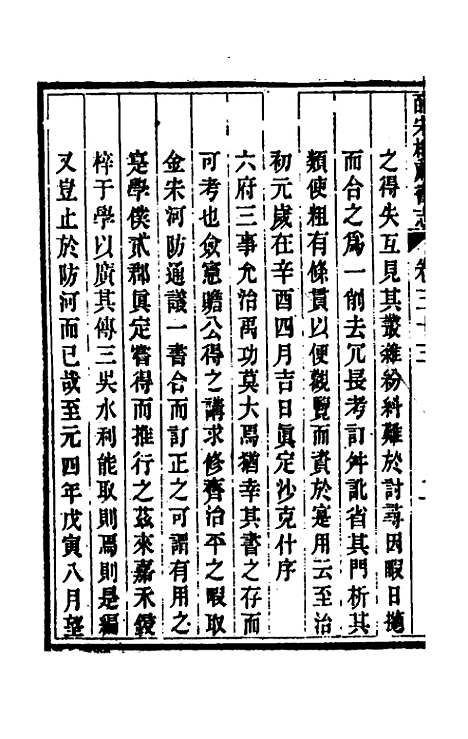 皕宋樓藏書志 卷三十三
之得失互見其叢雜紛糾難於討尋因暇日摭
而合之為一削去冗長考訂舛訛省其門析其
類使粗有條貫以便觀覽而資於寔用云至治
初元歲在辛酉四月吉日眞定沙克什序
六府三事允治禹功莫大焉猶幸其書之存而
可考也僉憲贍公得之講求修齊治平之暇取
金宋河防通議一書合而訂正之可謂有用之
寔學僕貳郡眞定嘗得而推行之茲來嘉禾鋟
梓于學以廣其傳三吳水利能取則焉則是編
又豈止於防河而已哉至元四年戊寅八月望